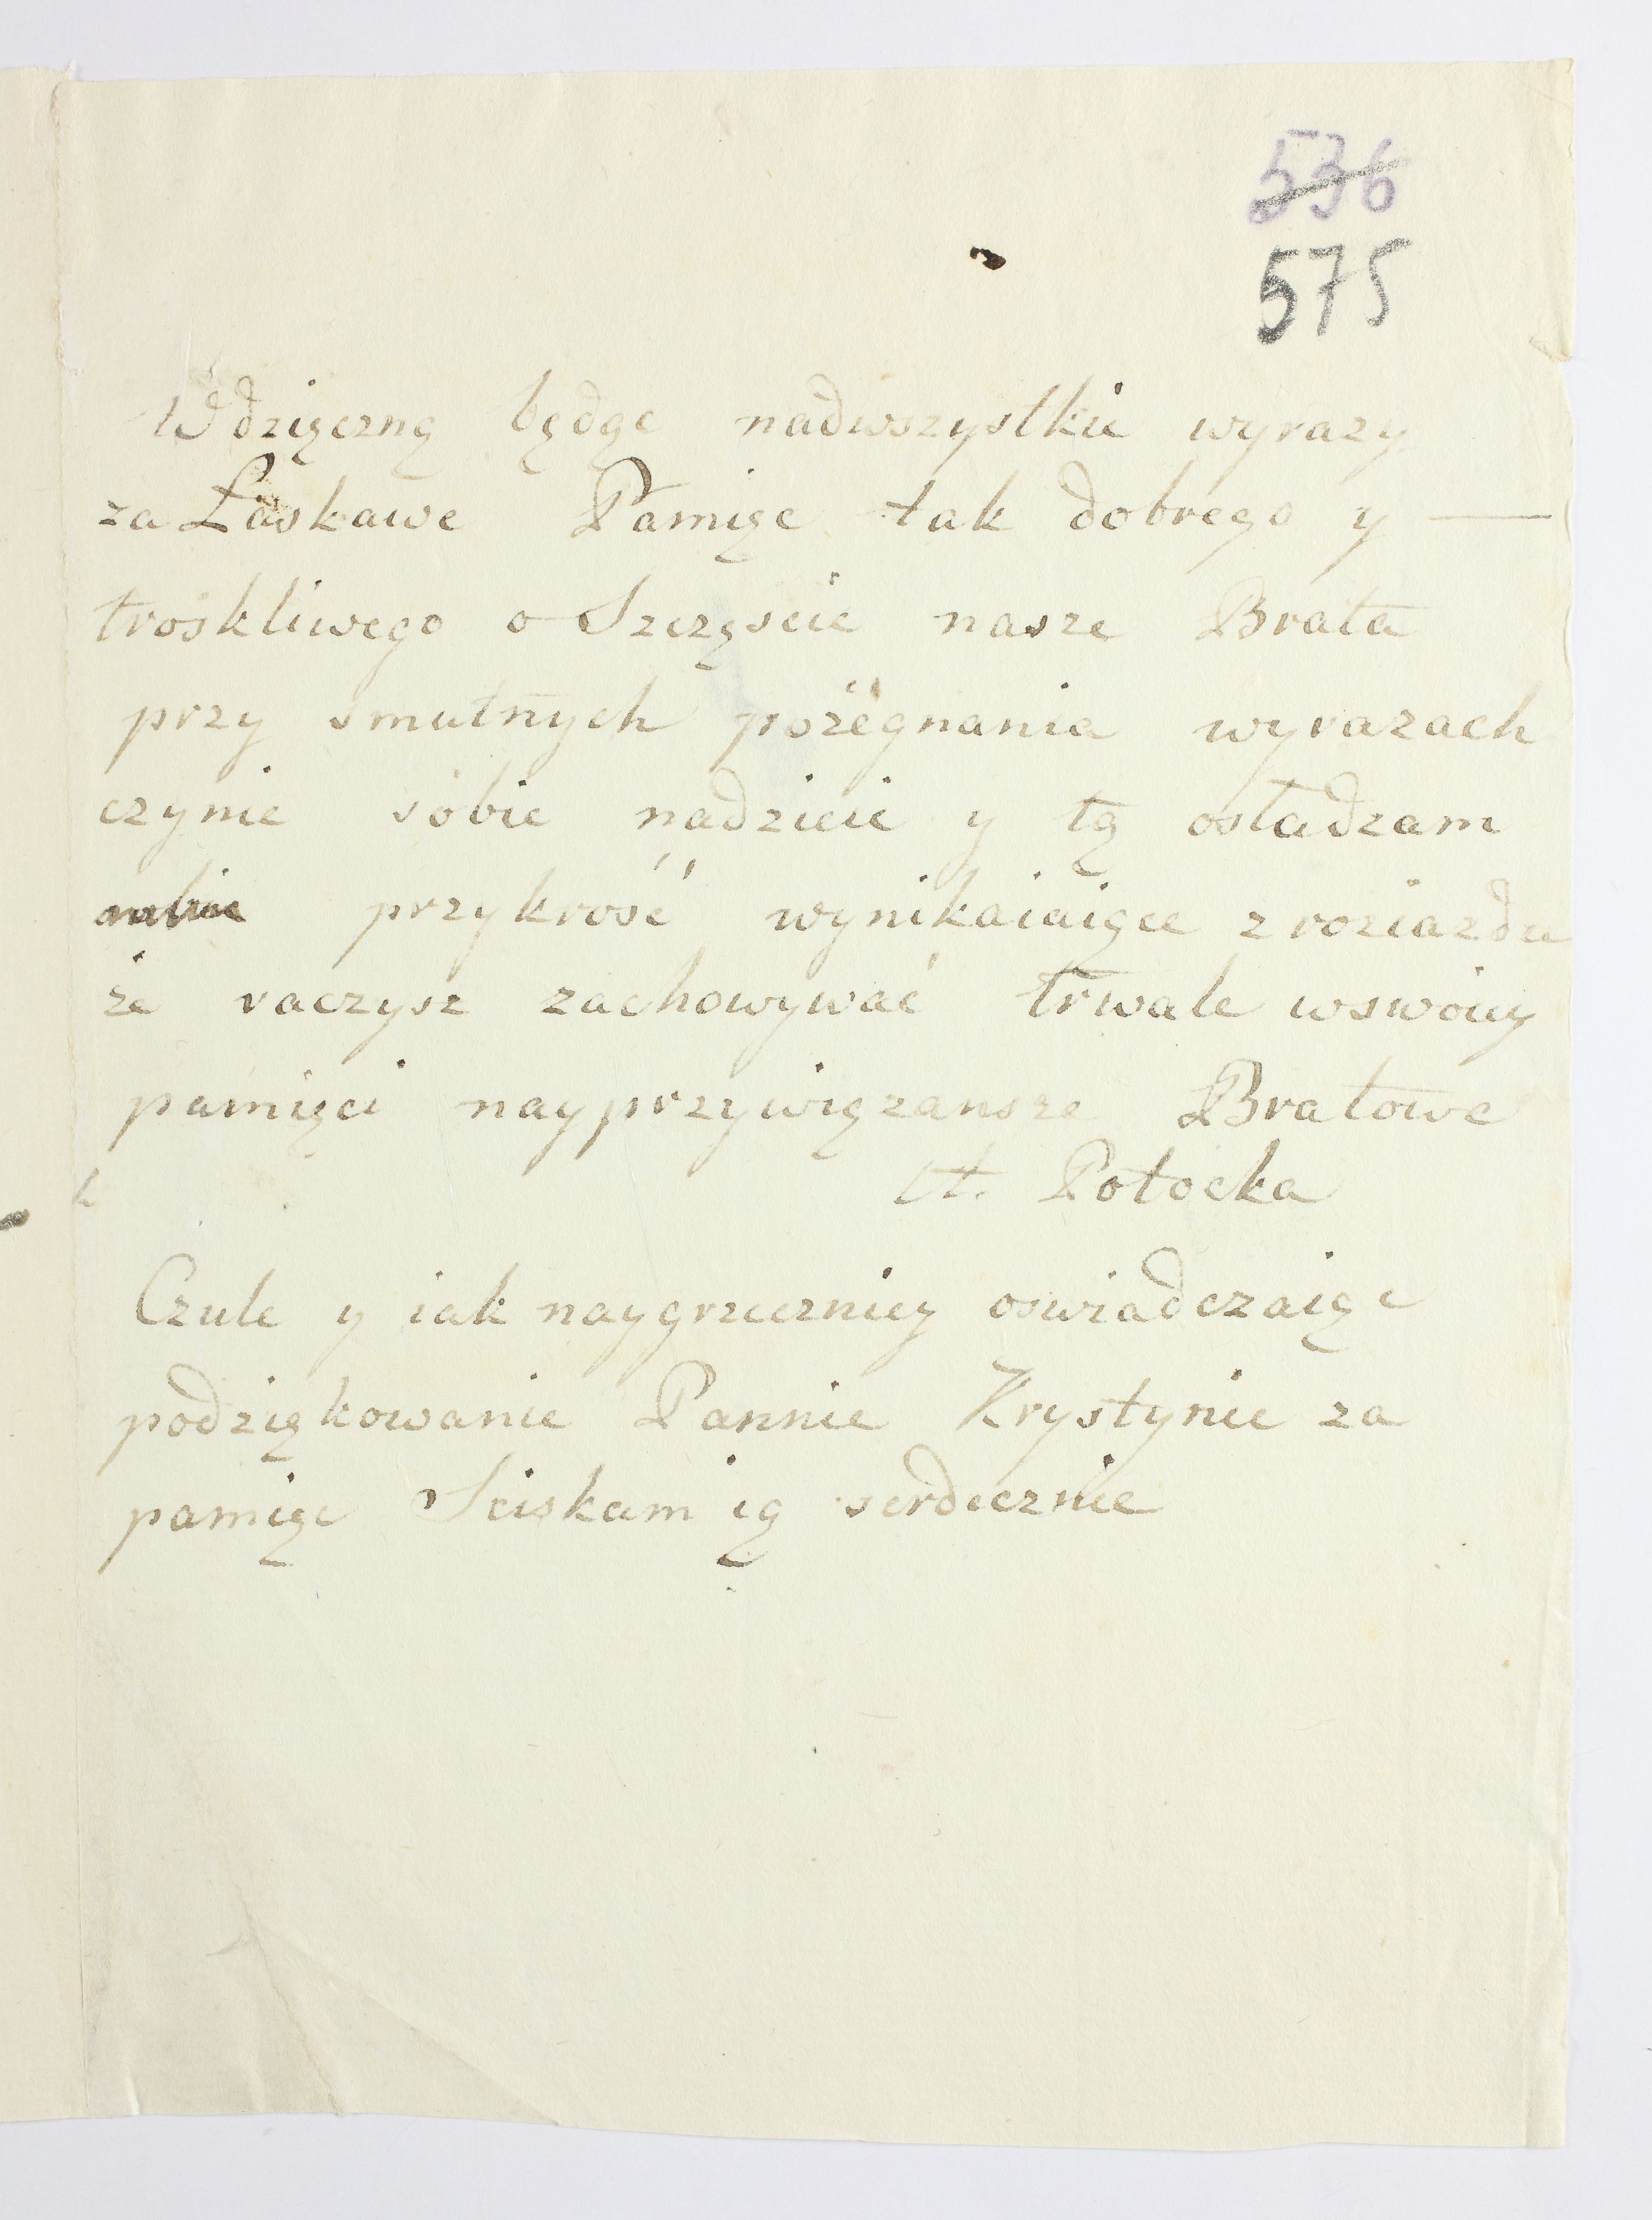 536
575
Wdzięczną będąc nadwszystkie wyrazy
za Łaskawe Pamięc tak dobrego y —
troskliwego o Szczęscie nasze Brata
przy smutnych pożegnania wyrazach
czynie sobie nadzieie y tą osładzam
przykrość wynikaiaiące z roziazdu
że raczysz zachowywać trwale wswoiey
pamięci nayprzywięzansze Bratowe
A. Potocka
Czule y iak naygrzeczniey oswiadczaiąc
podziękowanie Pannie Krystynie za
pamięc Sciskam ią serdecznie